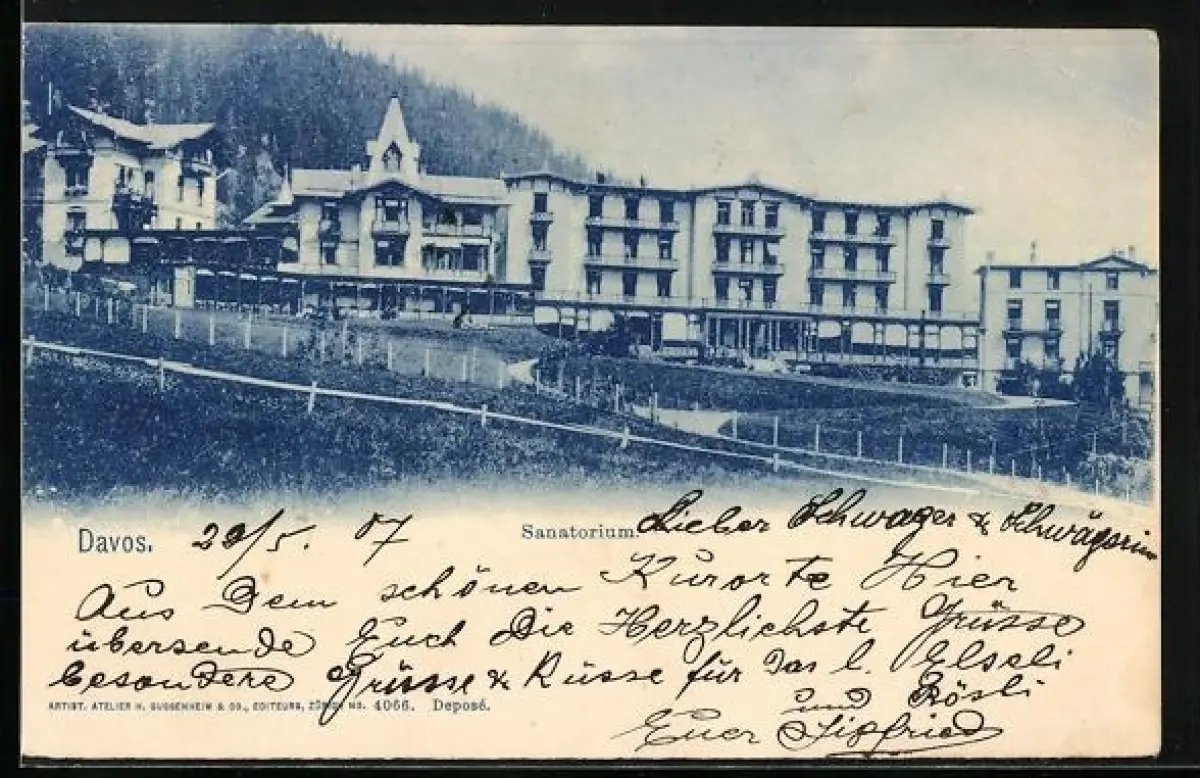 Davos. 29/5. 07 Sanatorium. Lieber Schwager & Schwägerin
Aus Dem schönen Kurorte Hier
übersende Euch Die Herzlichste Grüsse
besondere Grüsse & Küsse für Das l. Elseli
und Rösli
ARTIST. ATELIER H. GUGGENHEIM & CO., EDITEURS, ZÜRICH NO. 4066. Deposé.
Euer Sigfried